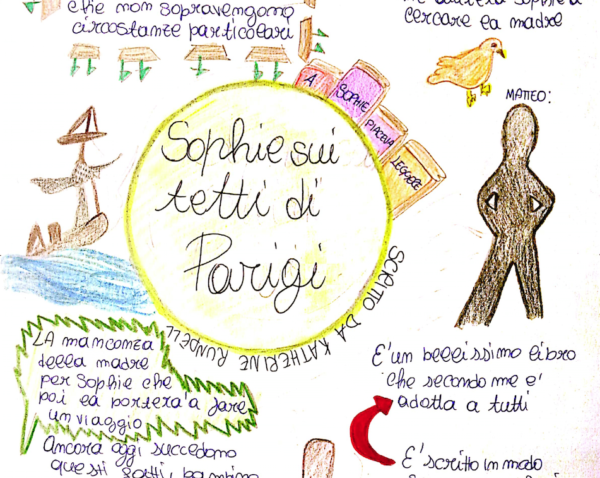 che non sopravengono
circostanze particolari
cercare la madre
A
SOPHIE
PIACEVA
LEGGERE
MATTEO:
Sophie sui
tetti di
Parigi
SCRITTO DA KATHERINE RUNDELL
LA mancanza
della madre
per Sophie che
poi la porterà a fare
un viaggio
Ancora oggi succedono
questi fatti, bambino
E' un bellissimo libro
che secondo me e'
adatta a tutti
E' scritto in modo